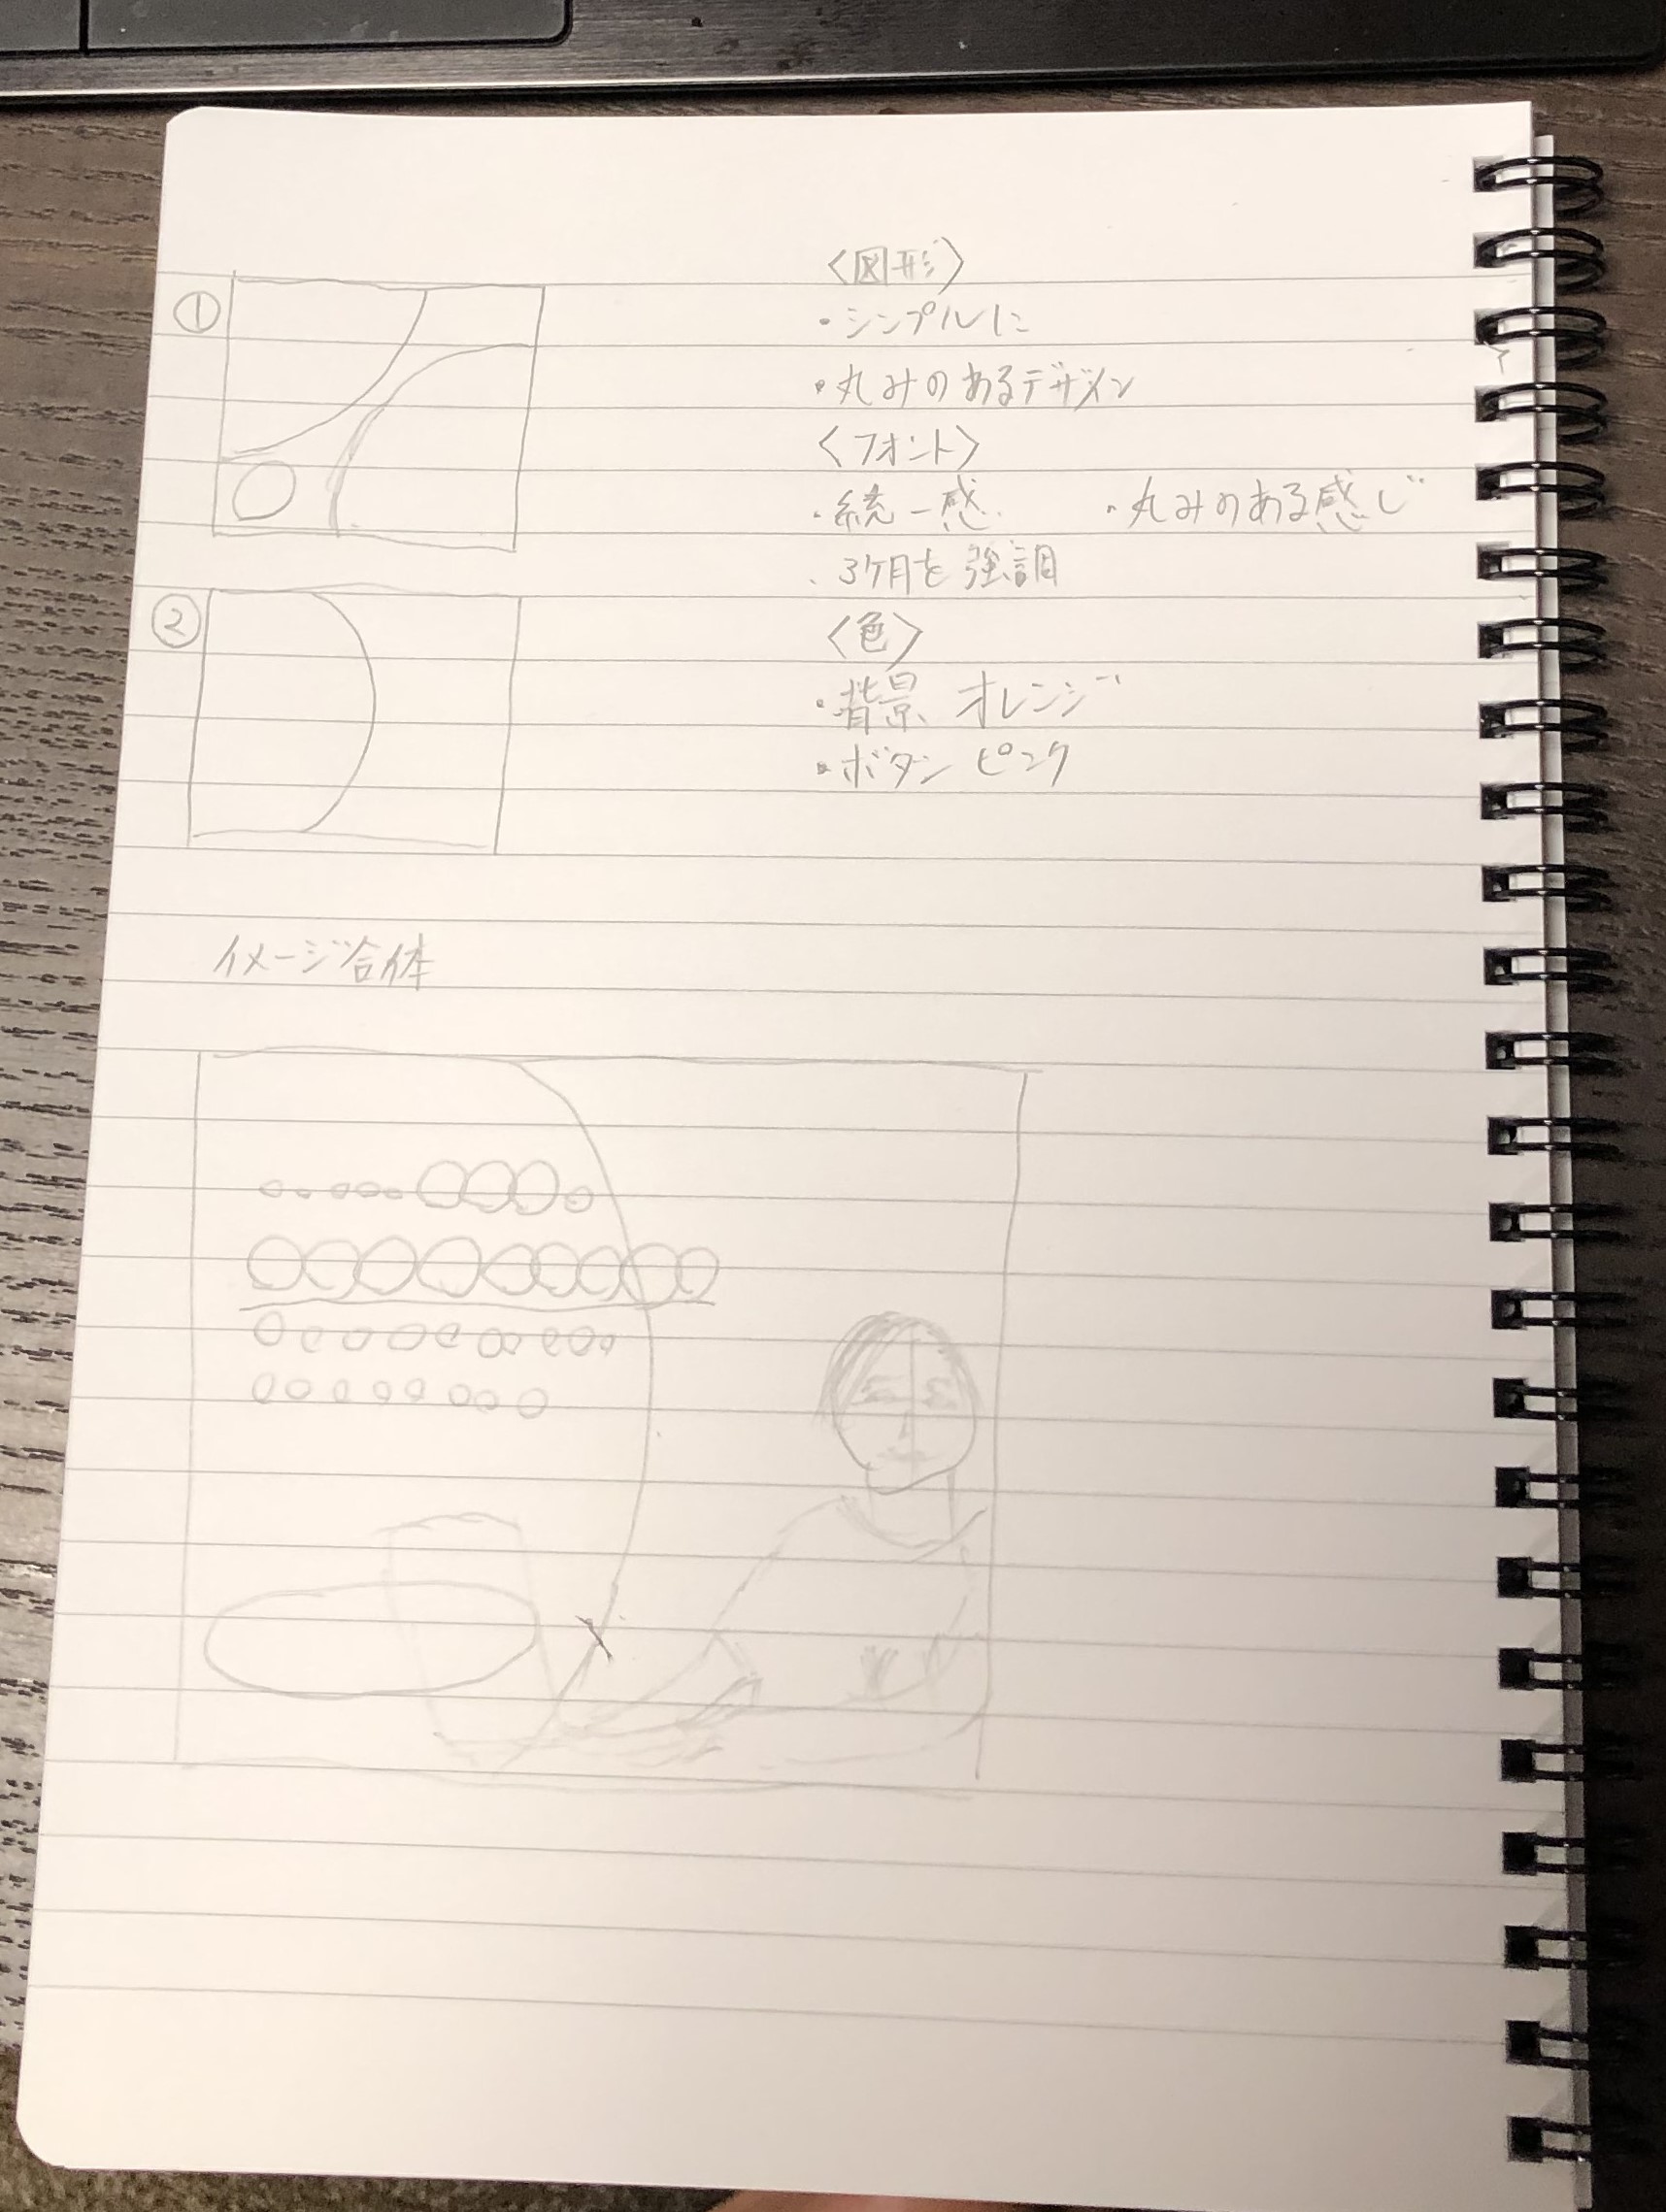 ①
〈図形〉
・シンプルに
・丸みのあるデザイン
〈フォント〉
・統一感　・丸みのある感じ
・3ヶ月を強調
②
〈色〉
・背景 オレンジ
・ボタン ピンク
イメージ合体